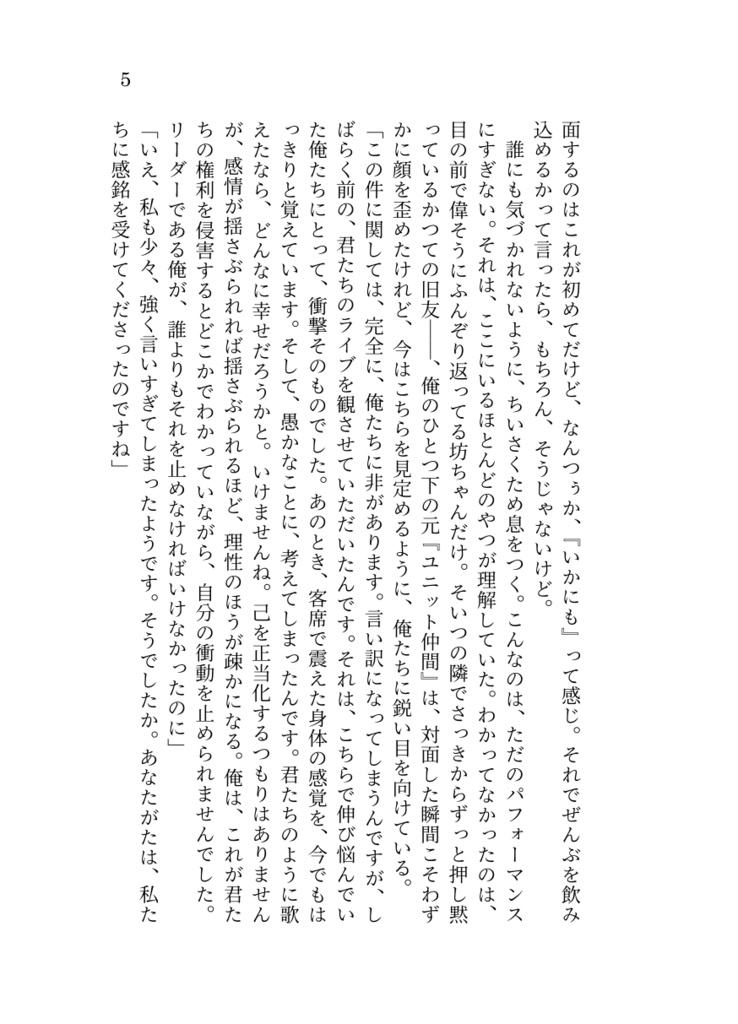 5
面するのはこれが初めてだけど、なんつぅか、『いかにも』って感じ。それでぜんぶを飲み
込めるかって言ったら、もちろん、そうじゃないけど。
　誰にも気づかれないように、ちいさくため息をつく。こんなのは、ただのパフォーマンス
にすぎない。それは、ここにいるほとんどのやつが理解していた。わかってなかったのは、
目の前で偉そうにふんぞり返ってる坊ちゃんだけ。そいつの隣でさっきからずっと押し黙
っているかつての旧友――、俺のひとつ下の元『ユニット仲間』は、対面した瞬間こそわず
かに顔を歪めたけれど、今はこちらを見定めるように、俺たちに鋭い目を向けている。
「この件に関しては、完全に、俺たちに非があります。言い訳になってしまうんですが、し
ばらく前の、君たちのライブを観させていただいたんです。それは、こちらで伸び悩んでい
た俺たちにとって、衝撃そのものでした。あのとき、客席で震えた身体の感覚を、今でもは
っきりと覚えています。そして、愚かなことに、考えてしまったんです。君たちのように歌
えたなら、どんなに幸せだろうかと。いけませんね。己を正当化するつもりはありません
が、感情が揺さぶられれば揺さぶられるほど、理性のほうが疎かになる。俺は、これが君た
ちの権利を侵害するとどこかでわかっていながら、自分の衝動を止められませんでした。
リーダーである俺が、誰よりもそれを止めなければいけなかったのに」
「いえ、私も少々、強く言いすぎてしまったようです。そうでしたか。あなたがたは、私た
ちに感銘を受けてくださったのですね」